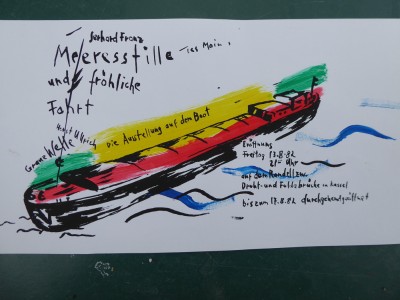 Gerhard Franz
Meeresstille
und fröhliche
Fahrt
Horst Ullrich
Werle
Die Ausstellung auf dem Boot
Eröffnung
Freitag 13.8.82
21 Uhr
auf dem Rondell zw.
Draht- und Fuldabrücke in Kassel
bis zum 17.8.82 durchgehend geöffnet